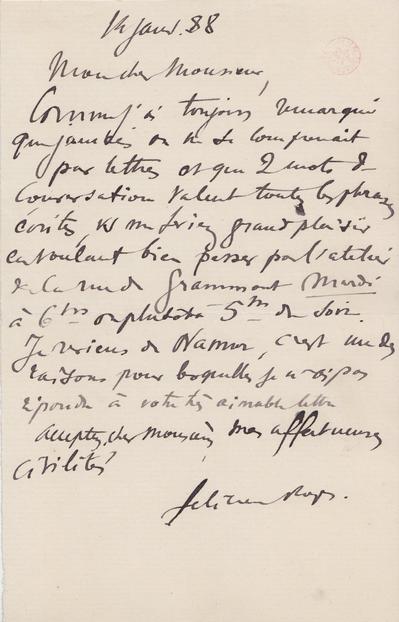 14 Janv. 88
Mon cher Monsieur,
Comme j'ai toujours remarqué
que jamais on ne se comprenait
par lettres et que 2 mots de
conversation valent toutes les phrases
écrites, vs me feriez grand plaisir
en voulant bien passer par l'atelier
de la rue de Grammont Mardi
à 6 hrs ou plutôt 5 hrs du soir.
Je reviens de Namur, c'est une des
raisons pour lesquelles je n'ai pas
répondu à votre très aimable lettre
Acceptez, cher Monsieur, mes affectueuses
civilités
Félicien Rops.